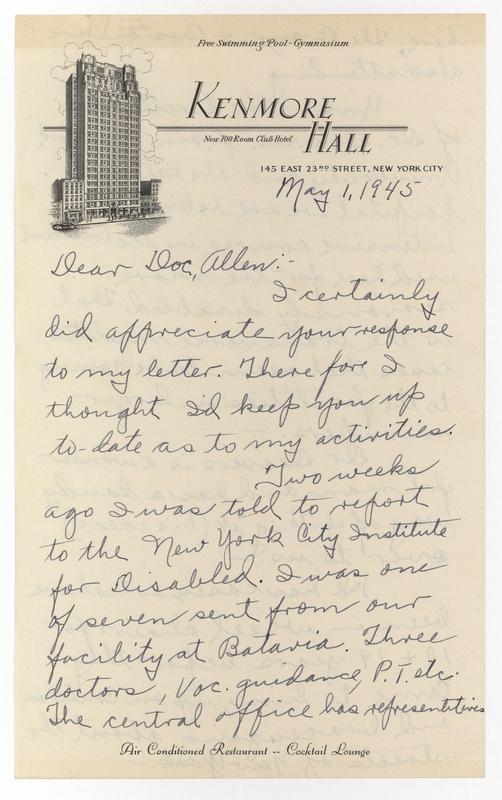 Free Swimming Pool - Gymnasium
KENMORE
New 700 Room Club Hotel
HALL
145 EAST 23RD STREET, NEW YORK CITY
May 1, 1945
Dear Doc, Allen:-
I certainly
did appreciate your response
to my letter. There fore I
thought I'd keep you up
to-date as to my activities.
Two weeks
ago I was told to report
to the New York City Institute
for Disabled. I was one
of seven sent from our
facility at Batavia. Three
doctors, Voc. guidance, P.T. etc.
The central office has representitives
Air Conditioned Restaurant -- Cocktail Lounge